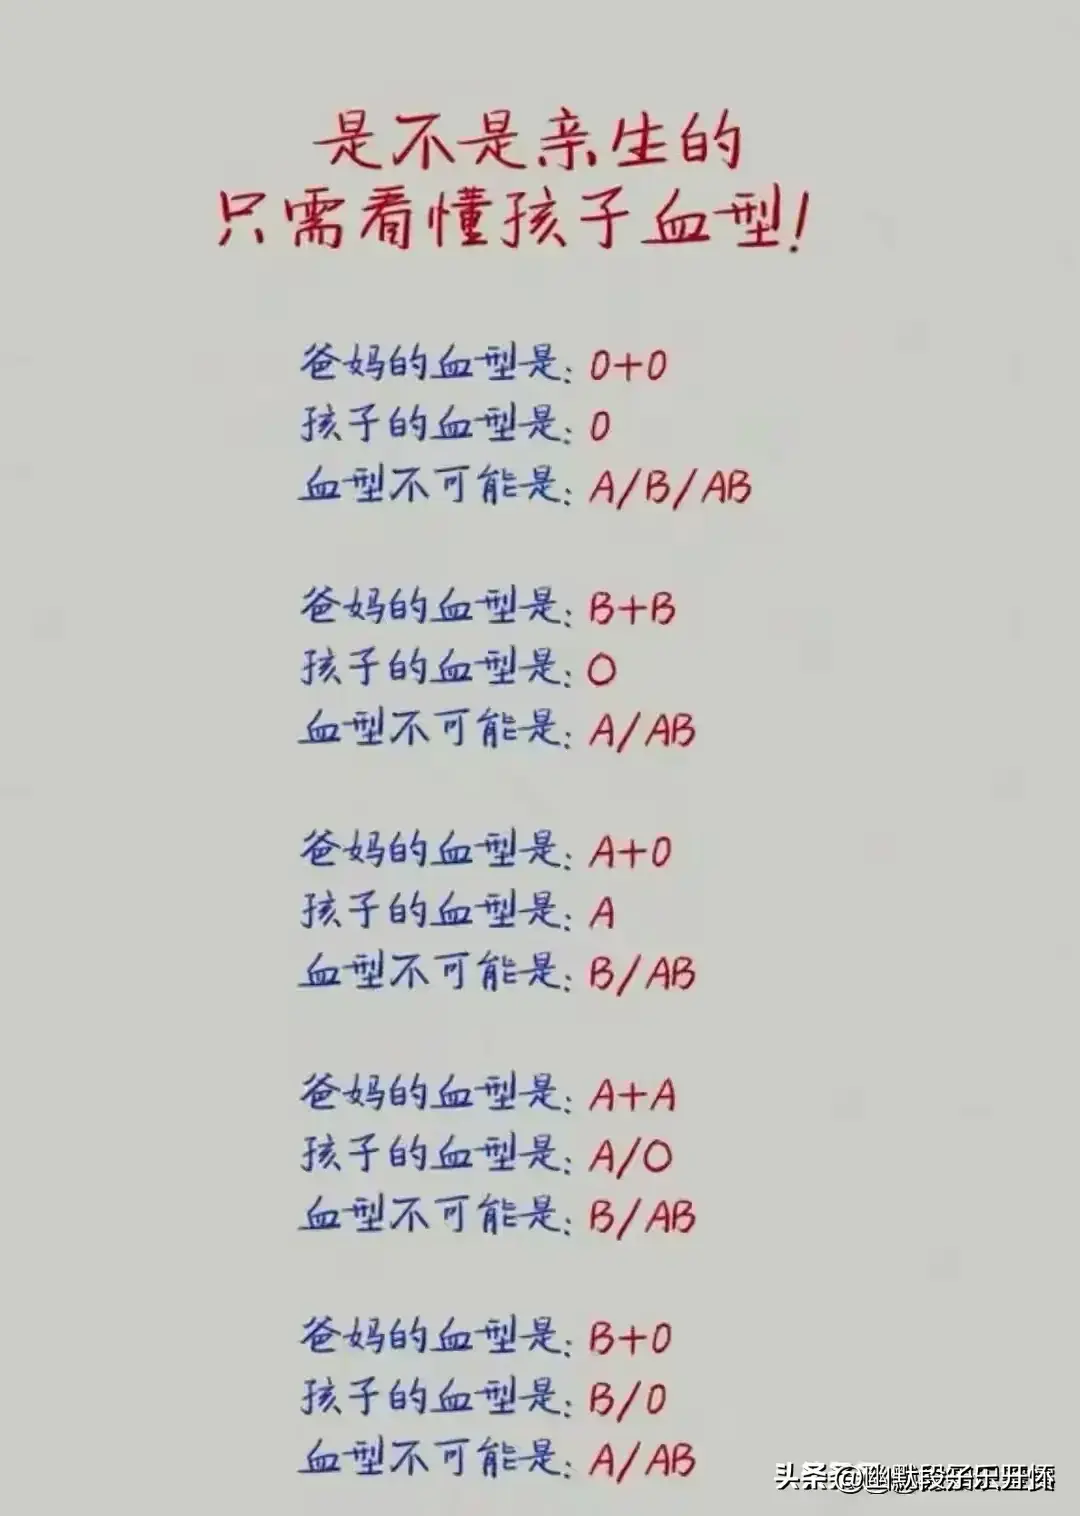 是不是亲生的
只需看懂孩子血型!
爸妈的血型是: O+O
孩子的血型是: O
血型不可能是: A/B/AB
爸妈的血型是: B+B
孩子的血型是: O
血型不可能是: A/AB
爸妈的血型是: A+O
孩子的血型是: A
血型不可能是: B/AB
爸妈的血型是: A+A
孩子的血型是: A/O
血型不可能是: B/AB
爸妈的血型是: B+O
孩子的血型是: B/O
血型不可能是: A/AB
头条 @幽默段子乐开怀